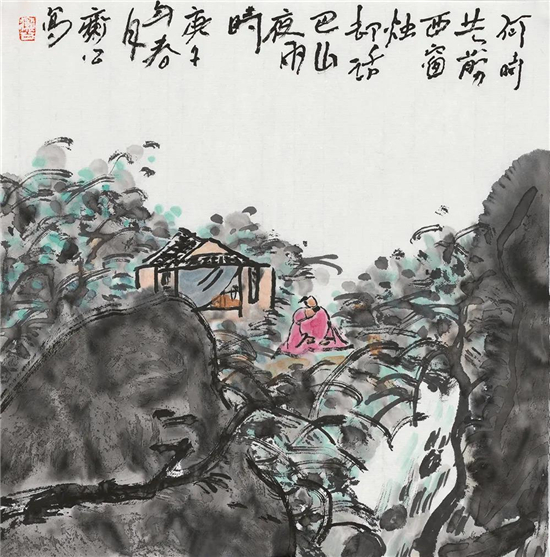 何時
共剪
西窗
烛
却話
巴山
夜雨
時
庚子
年春
月
寫